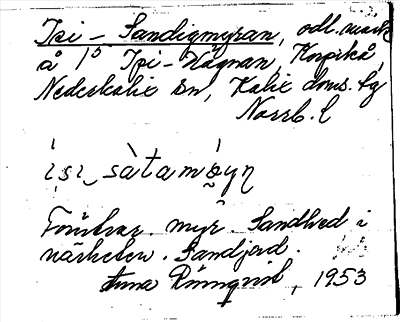 Isi-Sandigmyran, odl. mark
å 1⁵ Isi-Hägnan, Korpikå,
Nederkalix sn, Kalix doms. lg
Norrb. l
ísi sàtamø̀yn
Förutvar. myr. Sandhed i
närheten. Sandjord.
Anna Rönnqvist, 1953